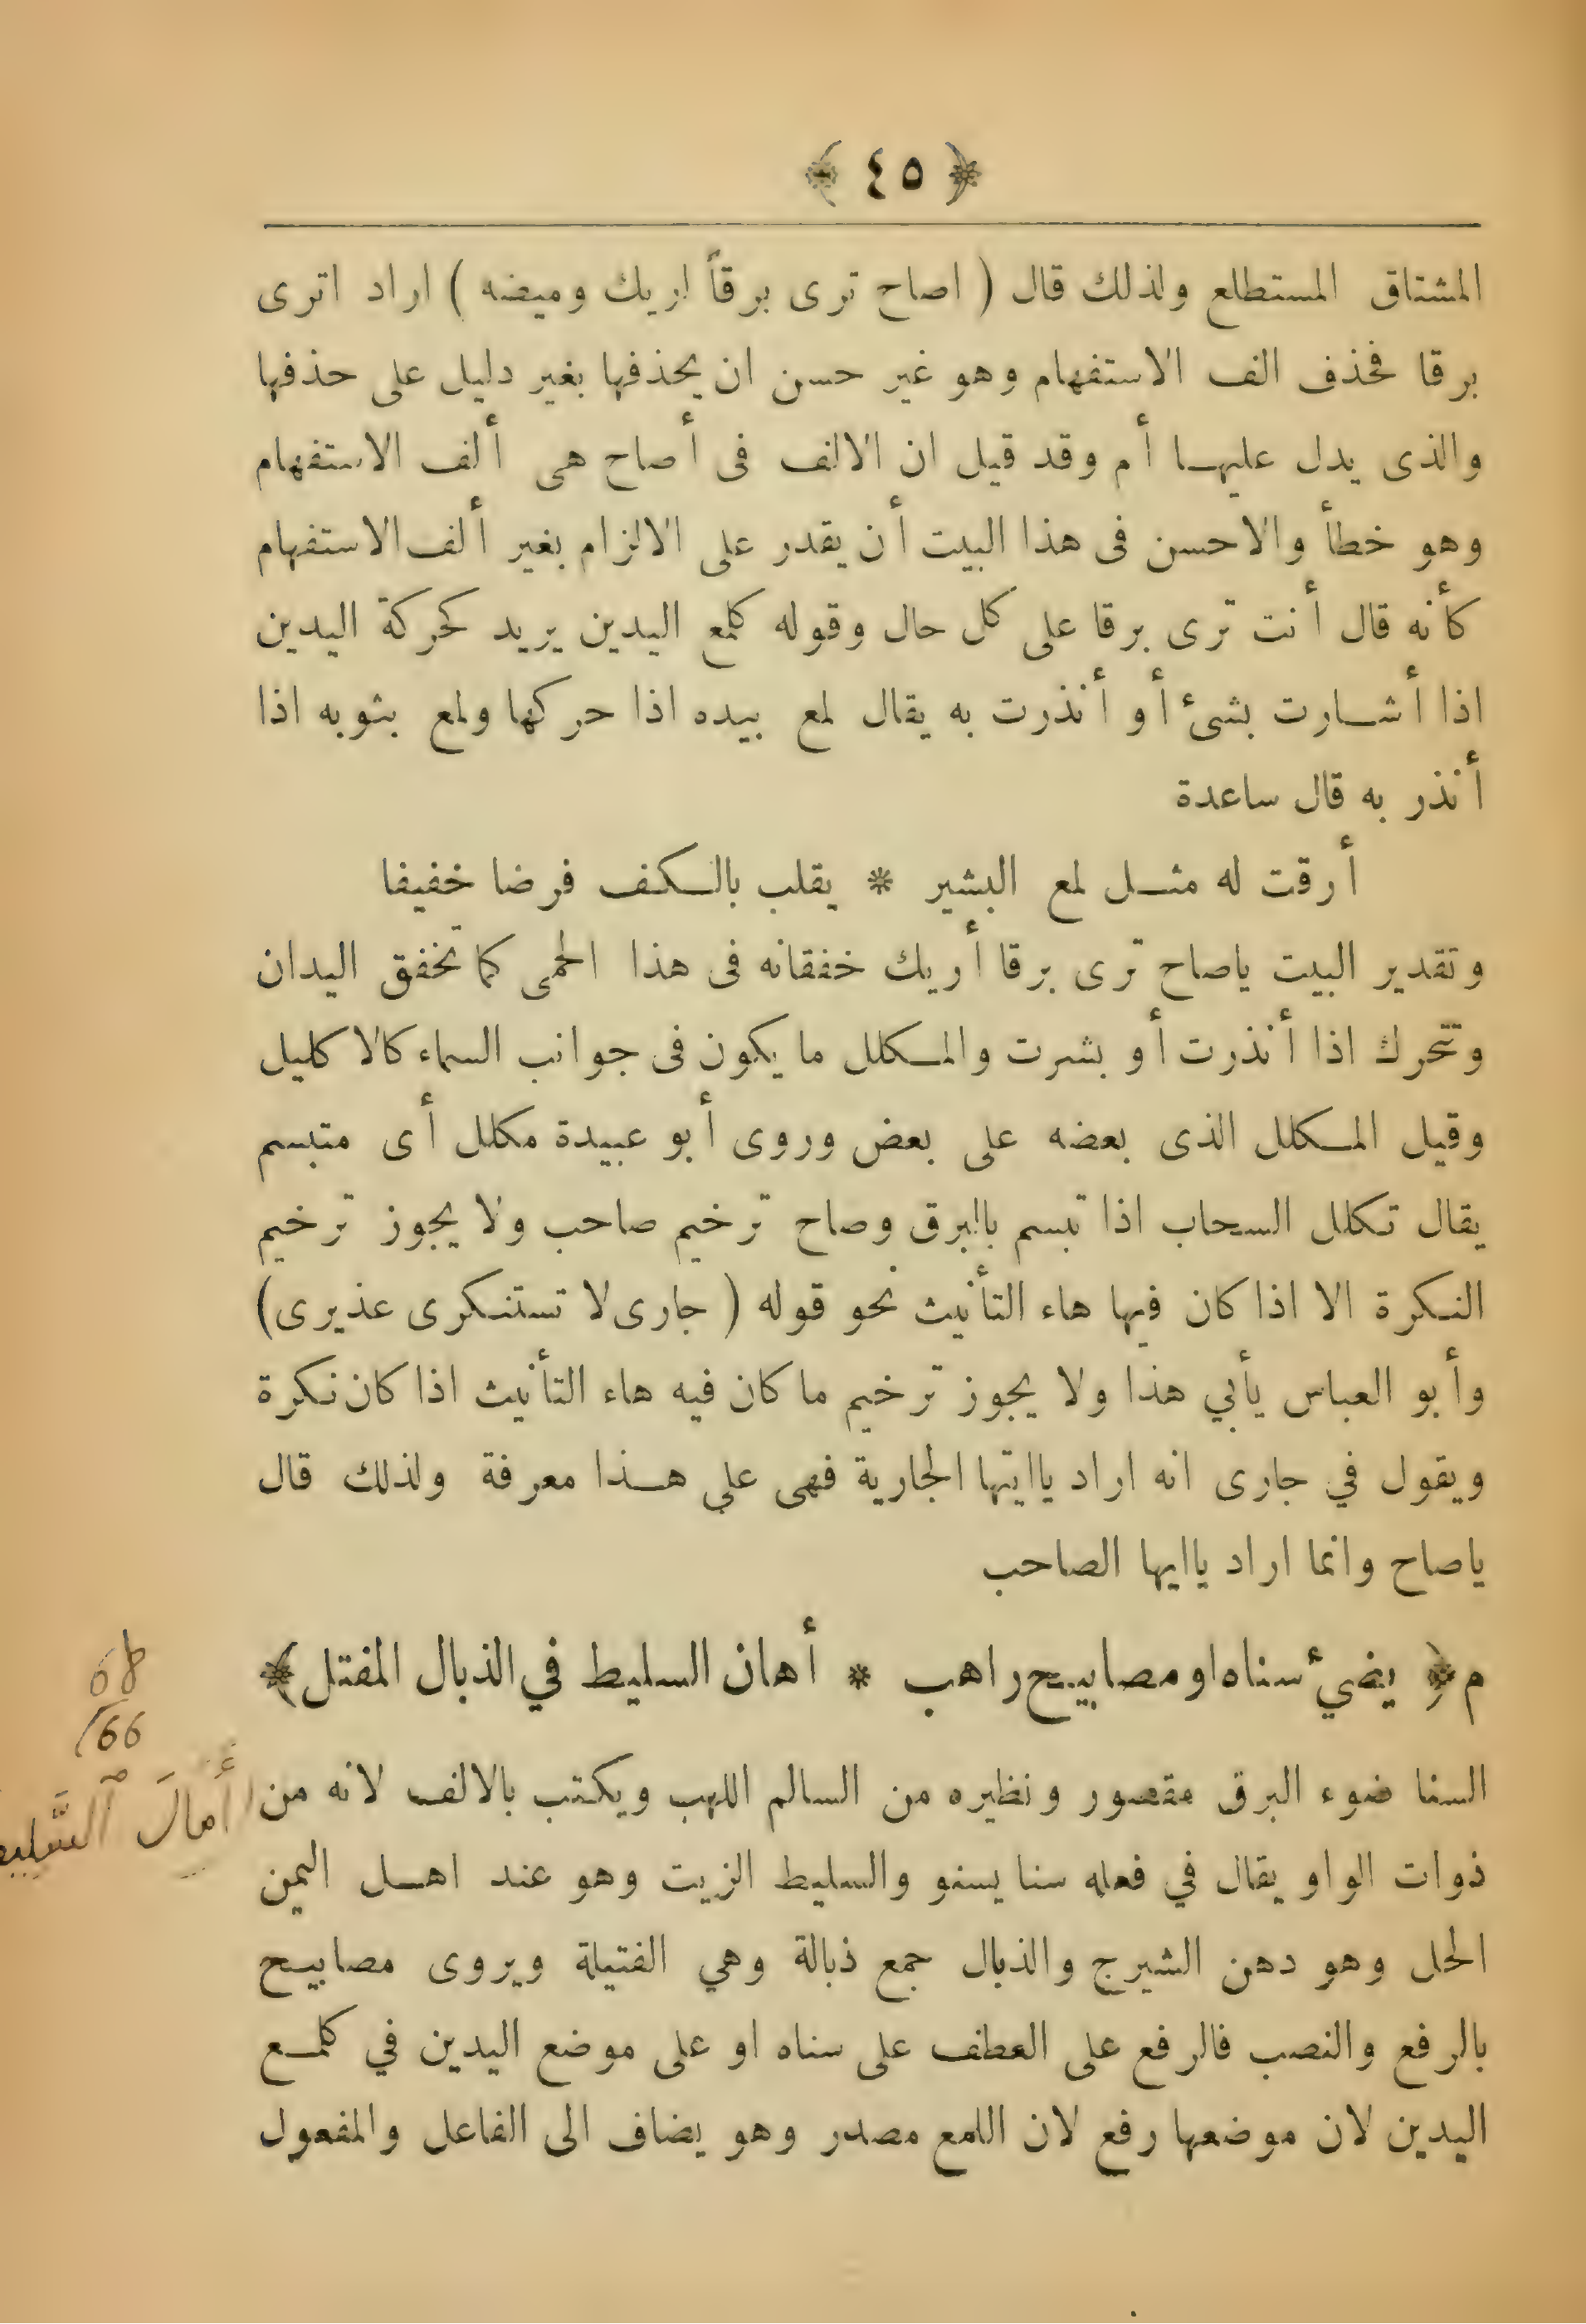 ﴿ ٤٥ ﴾
المشتاق المستطلع ولذلك قال ( اصاح ترى برقاً اريك وميضه ) اراد اترى
برقا فحذف الف الاستفهام وهو غير حسن ان يحذفها بغير دليل على حذفها
والذى يدل عليها أم وقد قيل ان الالف فى أصاح هى ألف الاستفهام
وهو خطأ والاحسن فى هذا البيت أن يقدر على الالزام بغير ألف الاستفهام
كأنه قال أنت ترى برقا على كل حال وقوله كلمع اليدين يريد كحركة اليدين
اذا أشارت بشئ أو أنذرت به يقال لمع بيده اذا حركها ولمع بثوبه اذا
أنذر به قال ساعدة
أرقت له مثل لمع البشير * يقلب بالكف فرضا خفيفا
وتقدير البيت ياصاح ترى برقا أريك خفقانه فى هذا الحمى كما تخفق اليدان
وتتحرك اذا أنذرت أو بشرت والمكلل ما يكون فى جوانب السماء كالاكليل
وقيل المكلل الذى بعضه على بعض وروى أبو عبيدة مكلل أى متبسم
يقال تكلل السحاب اذا تبسم بالبرق وصاح ترخيم صاحب ولا يجوز ترخيم
النكرة الا اذا كان فيها هاء التأنيث نحو قوله ( جارى لا تستنكرى عذيرى)
وأبو العباس يأبي هذا ولا يجوز ترخيم ما كان فيه هاء التأنيث اذا كان نكرة
ويقول في جارى انه اراد ياايتها الجارية فهى علي هذا معرفة ولذلك قال
ياصاح وانما اراد ياايها الصاحب
م ﴿ يضيء سناه او مصابيح راهب * أهان السليط في الذبال المفتل ﴾
68
/66
أمالَ ٱلسَّليط
السنا ضوء البرق مقصور ونظيره من السالم اللهب ويكتب بالالف لانه من
ذوات الواو يقال في فعله سنا يسنو والسليط الزيت وهو عند اهل اليمن
الحل وهو دهن الشيرج والذبال جمع ذبالة وهي الفتيلة ويروى مصابيح
بالرفع والنصب فالرفع على العطف على سناه او على موضع اليدين في كلمع
اليدين لان موضعها رفع لان اللمع مصدر وهو يضاف الى الفاعل والمفعول